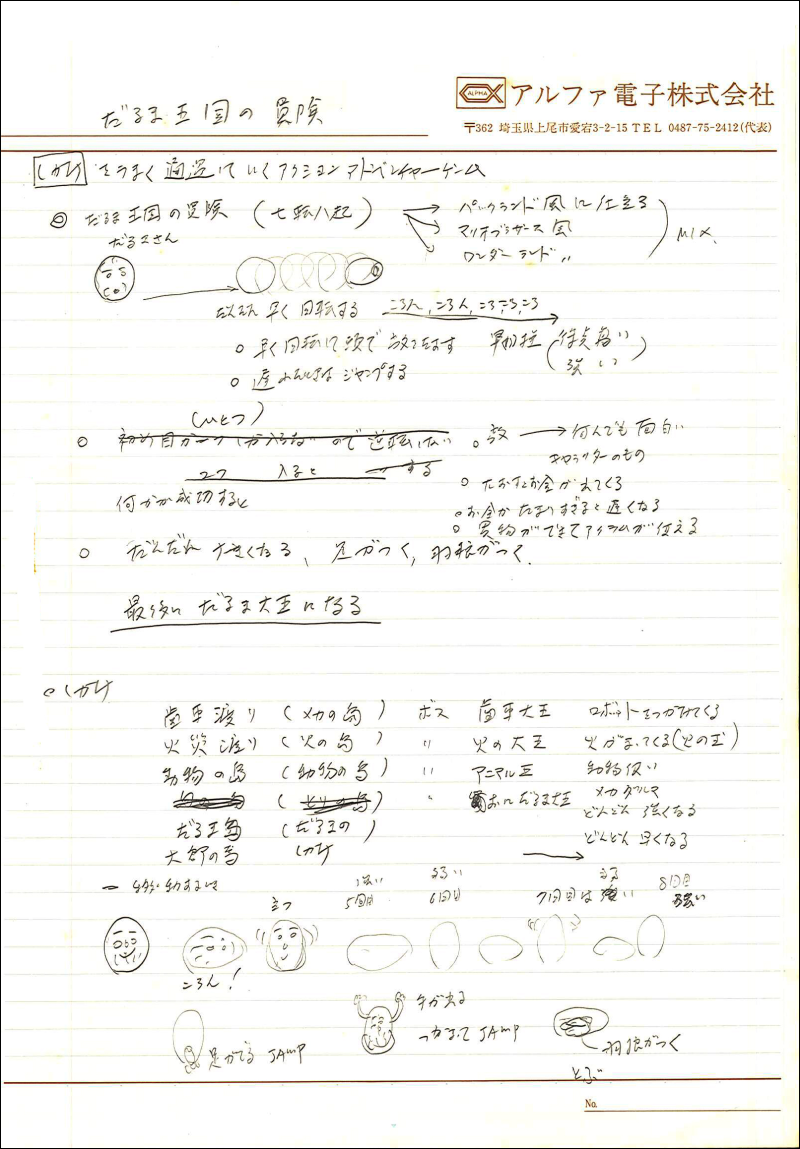 ALPHA アルファ電子株式会社
〒362 埼玉県上尾市愛宕3-2-15 TEL 0487-75-2412(代表)
だるま王国の冒険
しかけ をうまく通過していくアクションアドベンチャーゲーム
◎ だるま王国の冒険 (七転八起) → パックランド風に仕立る
マリオブラザース風
ワンダーランド 〃
MIX.
だるまさん
だんだん早く回転する ころん、ころん、ころころころ
○ 早く回転して頭で
得点高い
強い
○ 遅い ジャンプする
(ひとつ)
○ 初め目が一つしかない ので逆転しない
2つ 入ると する
何かが成功すると
○ 敵 → 何んでも面白い
キャラクターのもの
○ たおすとお金が出てくる
○ お金がたまりすぎると遅くなる
○ 買物ができてアイテムが使える
○ だんだん大きくなる、足がつく、羽根がつく.
最後にだるま大王になる
○ しかけ
歯車渡り (メカの島) ボス 歯車大王 ロボットをつかってくる
火災渡り (火の島) 〃 火の大王 火がまってくる(火の玉)
動物の島 (動物の島) 〃 アニマル王 動物使い
〃 おにだるま大王 メカダルマ
どんどん強くなる
だるま島 (だるまの しかけ)
どんどん早くなる
大郎の島
立つ
強い
5回目
弱い
6回目
7回目は
8回目
ころん!
足がでる JAMP
手が出る
つかまって JAMP
羽根がつく
とぶ
No.